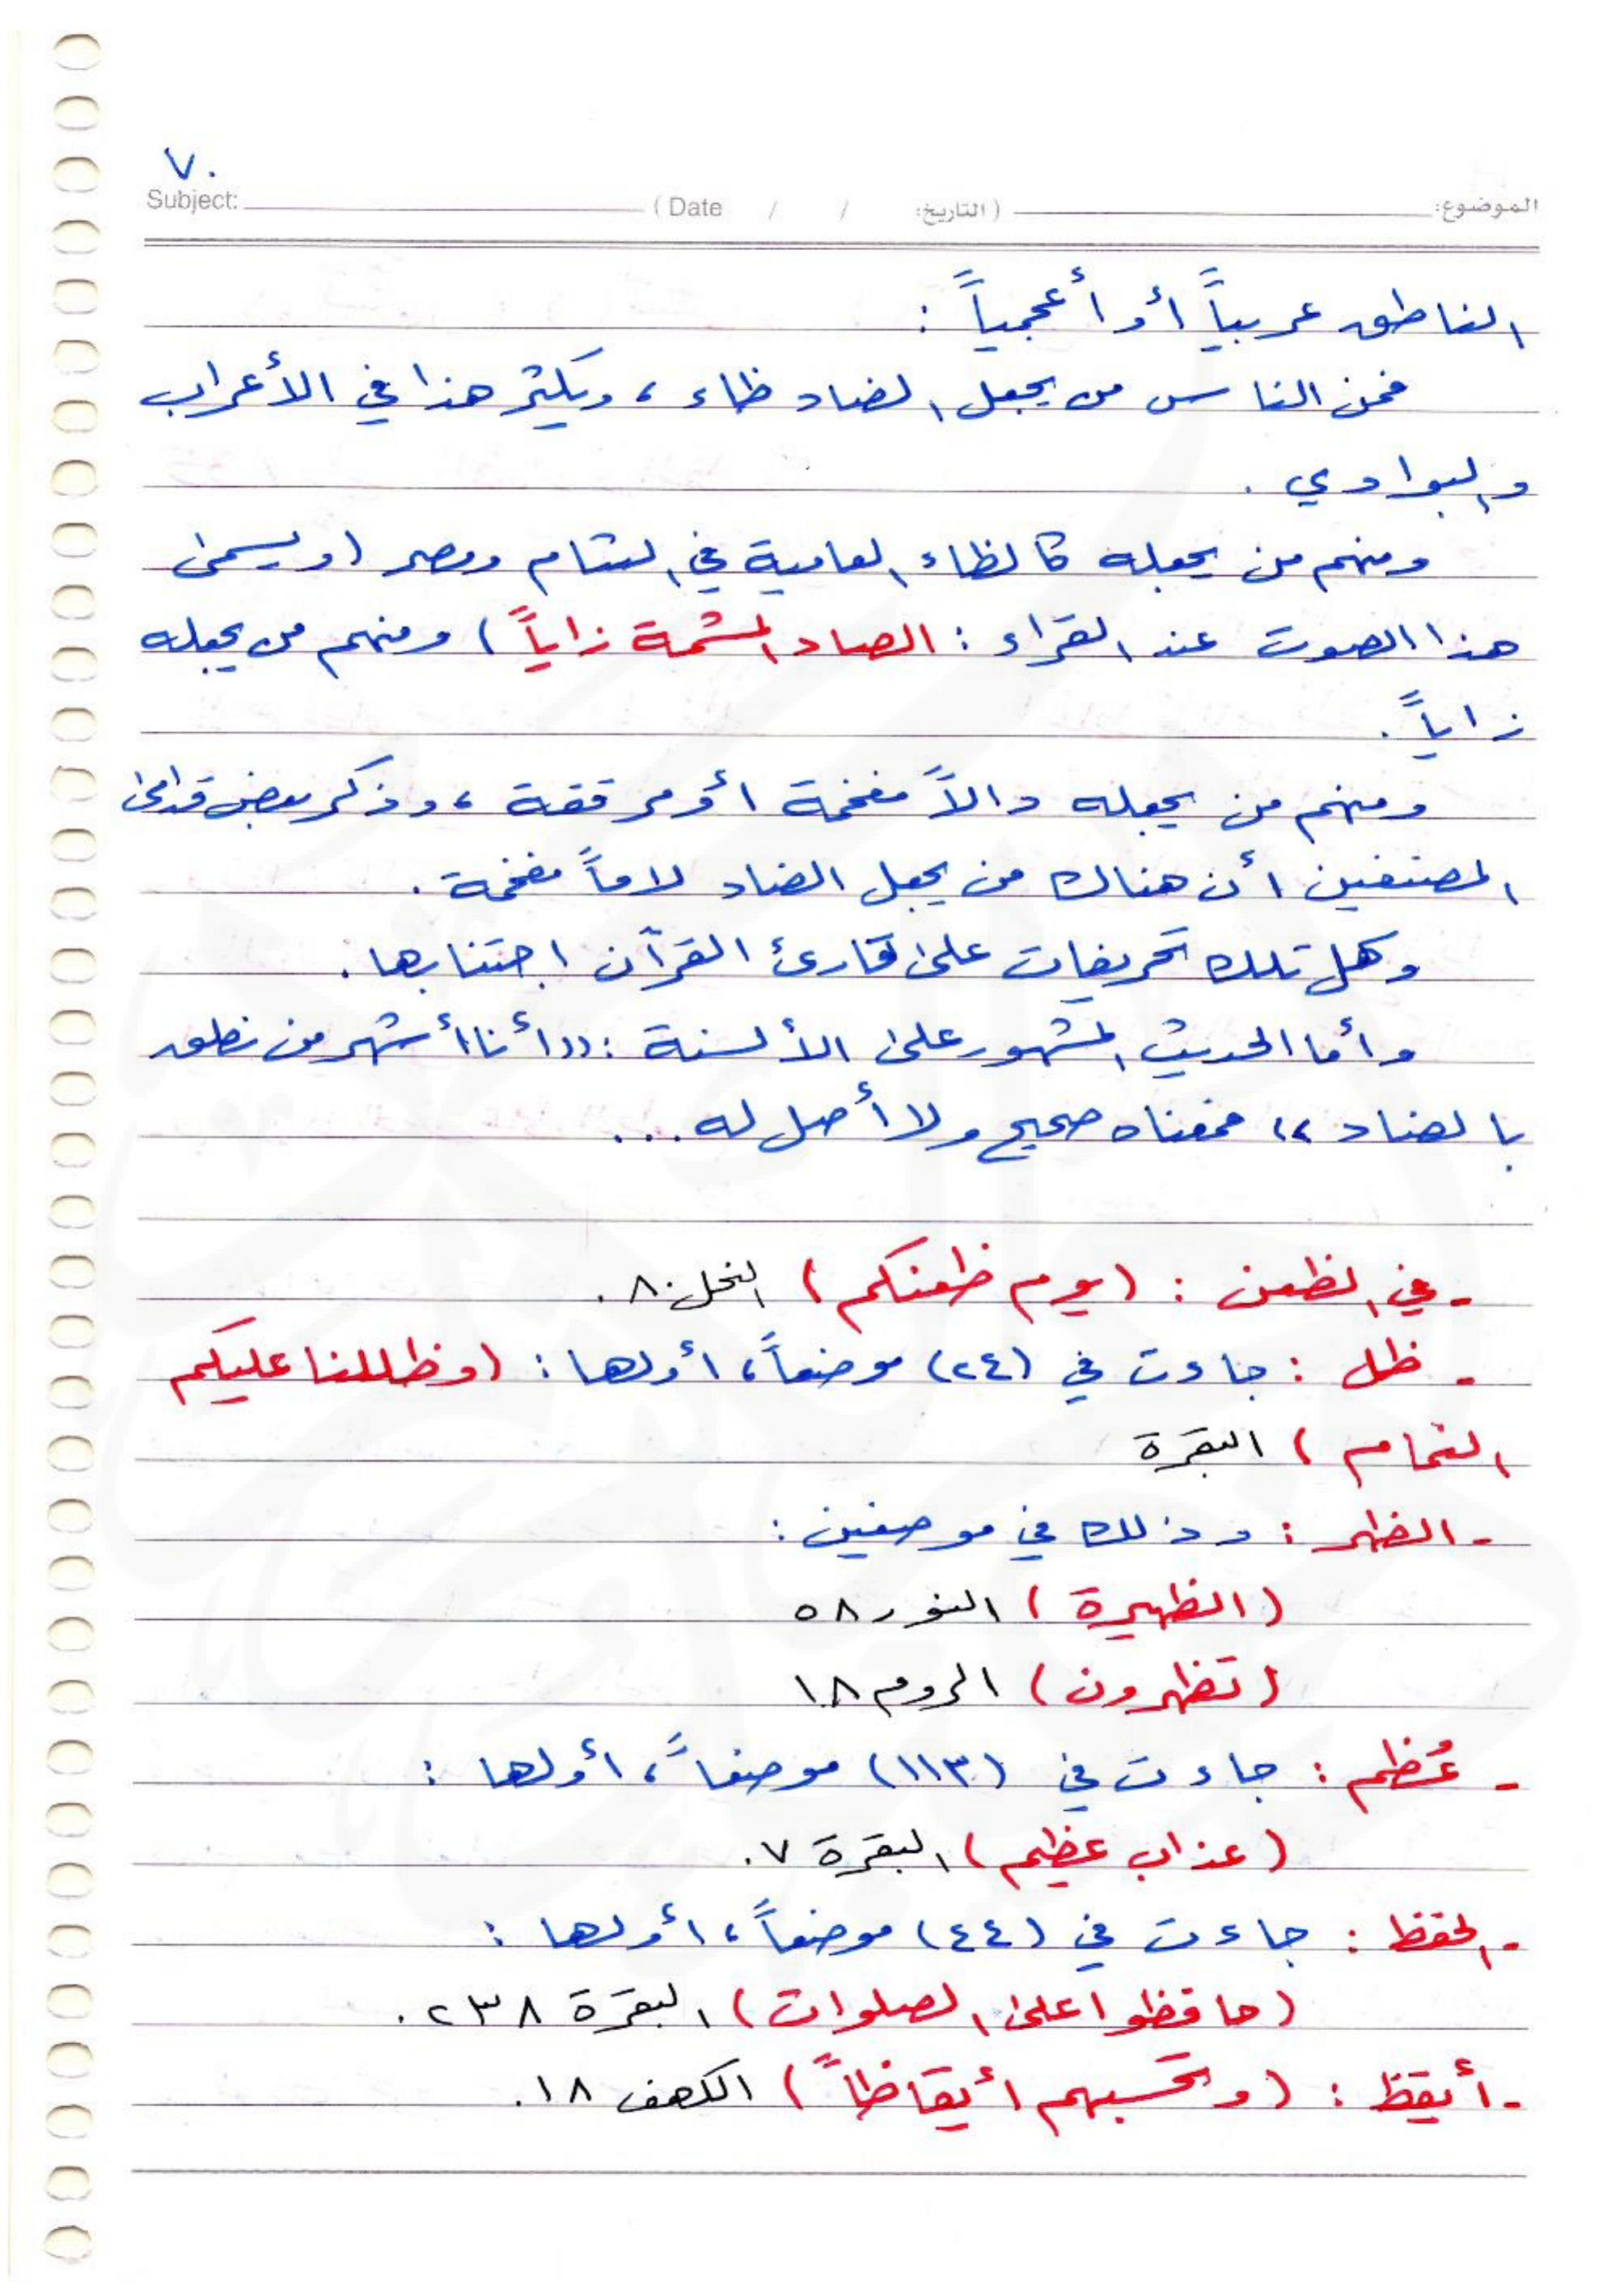 ٧٠
Subject: (Date / / التاريخ:) الموضوع:
الناطق عربياً أو أعجمياً :
فمن الناس من يجعل الضاد ظاء ، ويكثر هذا في الأعراب
والبوادي .
ومنهم من يجعله كالظاء العامية في الشام ومصر (ويسمى
هذا الصوت عند القراء : الصاد المشمة زاياً) ومنهم من يجعله
زاياً .
ومنهم من يجعله دالاً مفخمة أو مرققة ، وذكر بعض قدامى
المصنفين أن هناك من يجعل الضاد لاماً مفخمة .
وكل تلك تحريفات على قارئ القرآن اجتنابها .
وأما الحديث المشهور على الألسنة : ((أنا أشهر من نطق
بالضاد)) فمعناه صحيح ولا أصل له ...
- في الظعن : (يوم ظعنكم) النحل ٨٠ .
- ظل : جاءت في (٢٤) موضعاً ، أولها : (وظللنا عليكم
الغمام) البقرة
- الظهر : وذلك في موضعين :
(الظهيرة) النور ٥٨
(تظهرون) الروم ١٨
- عُظم : جاءت في (١١٣) موضعاً ، أولها :
(عذاب عظيم) البقرة ٧ .
- الحفظ : جاءت في (٤٤) موضعاً ، أولها :
(حافظوا على الصلوات) البقرة ٢٣٨ .
- أيقظ : (وتحسبهم أيقاظاً) الكهف ١٨ .